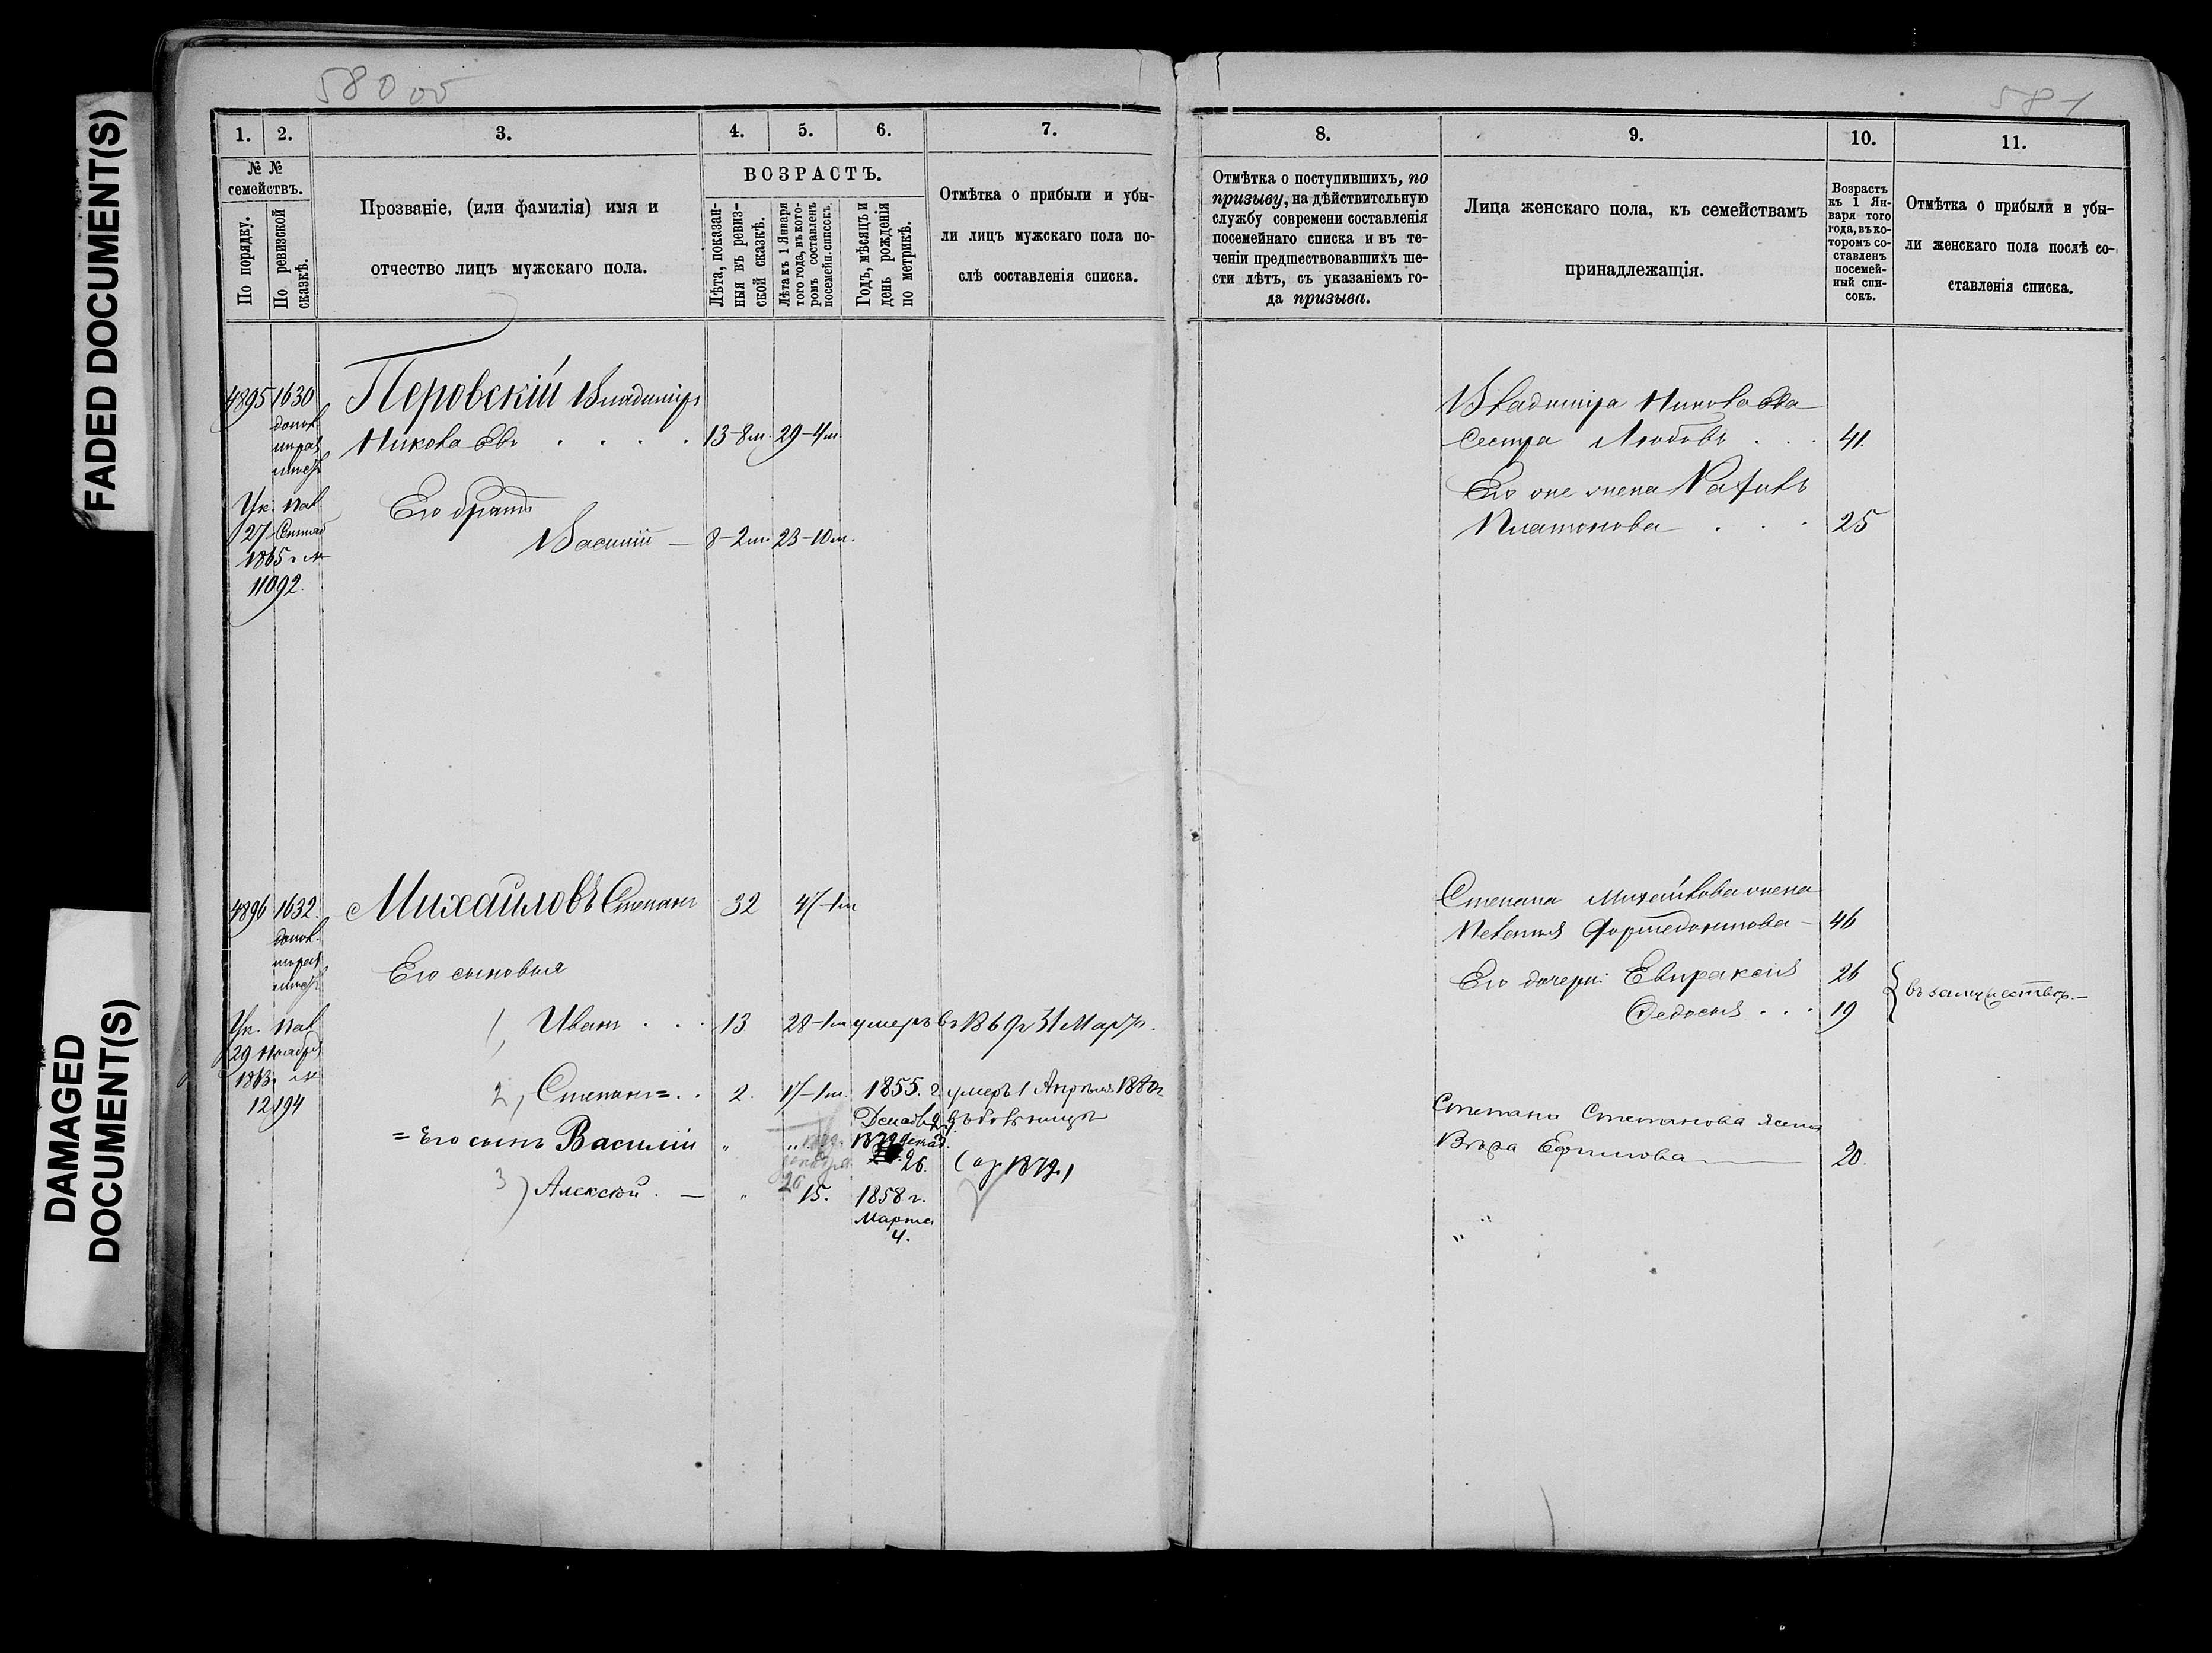 FADED DOCUMENT(S)
DAMAGED
DOCUMENT(S)
580 об
1. 2. 3. 4. 5. 6. 7.
№ №
семействъ.
По порядку.
По ревизской
сказкѣ.
Прозваніе, (или фамилія) имя и
отчество лицъ мужскаго пола.
ВОЗРАСТЪ.
Лѣта, показан-
ныя въ ревиз-
ской сказкѣ.
Лѣта къ 1 Января
того года, въ кото-
ромъ составленъ
посемейн. списокъ.
Годъ, мѣсяцъ и
день рожденія
по метрикѣ.
Отмѣтка о прибыли и убы-
ли лицъ мужскаго пола по-
слѣ составленія списка.
4895 1630 Перовскій Владиміръ
допол.
Никола евъ . . . . 13-8м. 29-4м.
Ук. Пал.
27 Сентяб
1865 г №
11092.
Его братъ
Василій — 8-2м. 23-10м.
4896 1632. Михайловъ Степанъ 32 47-1м
допол.
Его сыновья
Ук. Пал
29 Ноября
1863 г №
12194
1, Иванъ . . . 13 28-1м умеръ въ 1869 г 31 Марта.
2, Степанъ = . . 2. 17-1м. 1855. г. умеръ 1 Апрѣля 1880 г
Декаб. 24 въ больницѣ
= Его сынъ Василій „ „ 1879 декаб.
26. (ор. 1879.)
декабря
26
3) Алексѣй . — „ 15. 1858 г.
Марта
4.
581
8. 9. 10. 11.
Отмѣтка о поступившихъ, по
призыву, на дѣйствительную
службу современи составленія
посемейнаго списка и въ те-
ченіи предшествовавшихъ ше-
сти лѣтъ, съ указаніемъ го-
да призыва.
Лица женскаго пола, къ семействамъ
принадлежащія.
Возрастъ
къ 1 Ян-
варя того
года, въ ко-
торомъ со-
ставленъ
посемей-
ный спи-
сокъ.
Отмѣтка о прибыли и убы-
ли женскаго пола послѣ со-
ставленія списка.
Владиміра Никола ева
Сестра Любовь . . . 41.
Его же жена
Платонова . . . 25
Степана Михайлова жена
Пелагія — 46
Его дочери: Евпраксія 26
Федосья . . . 19
въ замужествѣ. —
Степана Степанова жена
Вѣра Ефимова — 20.